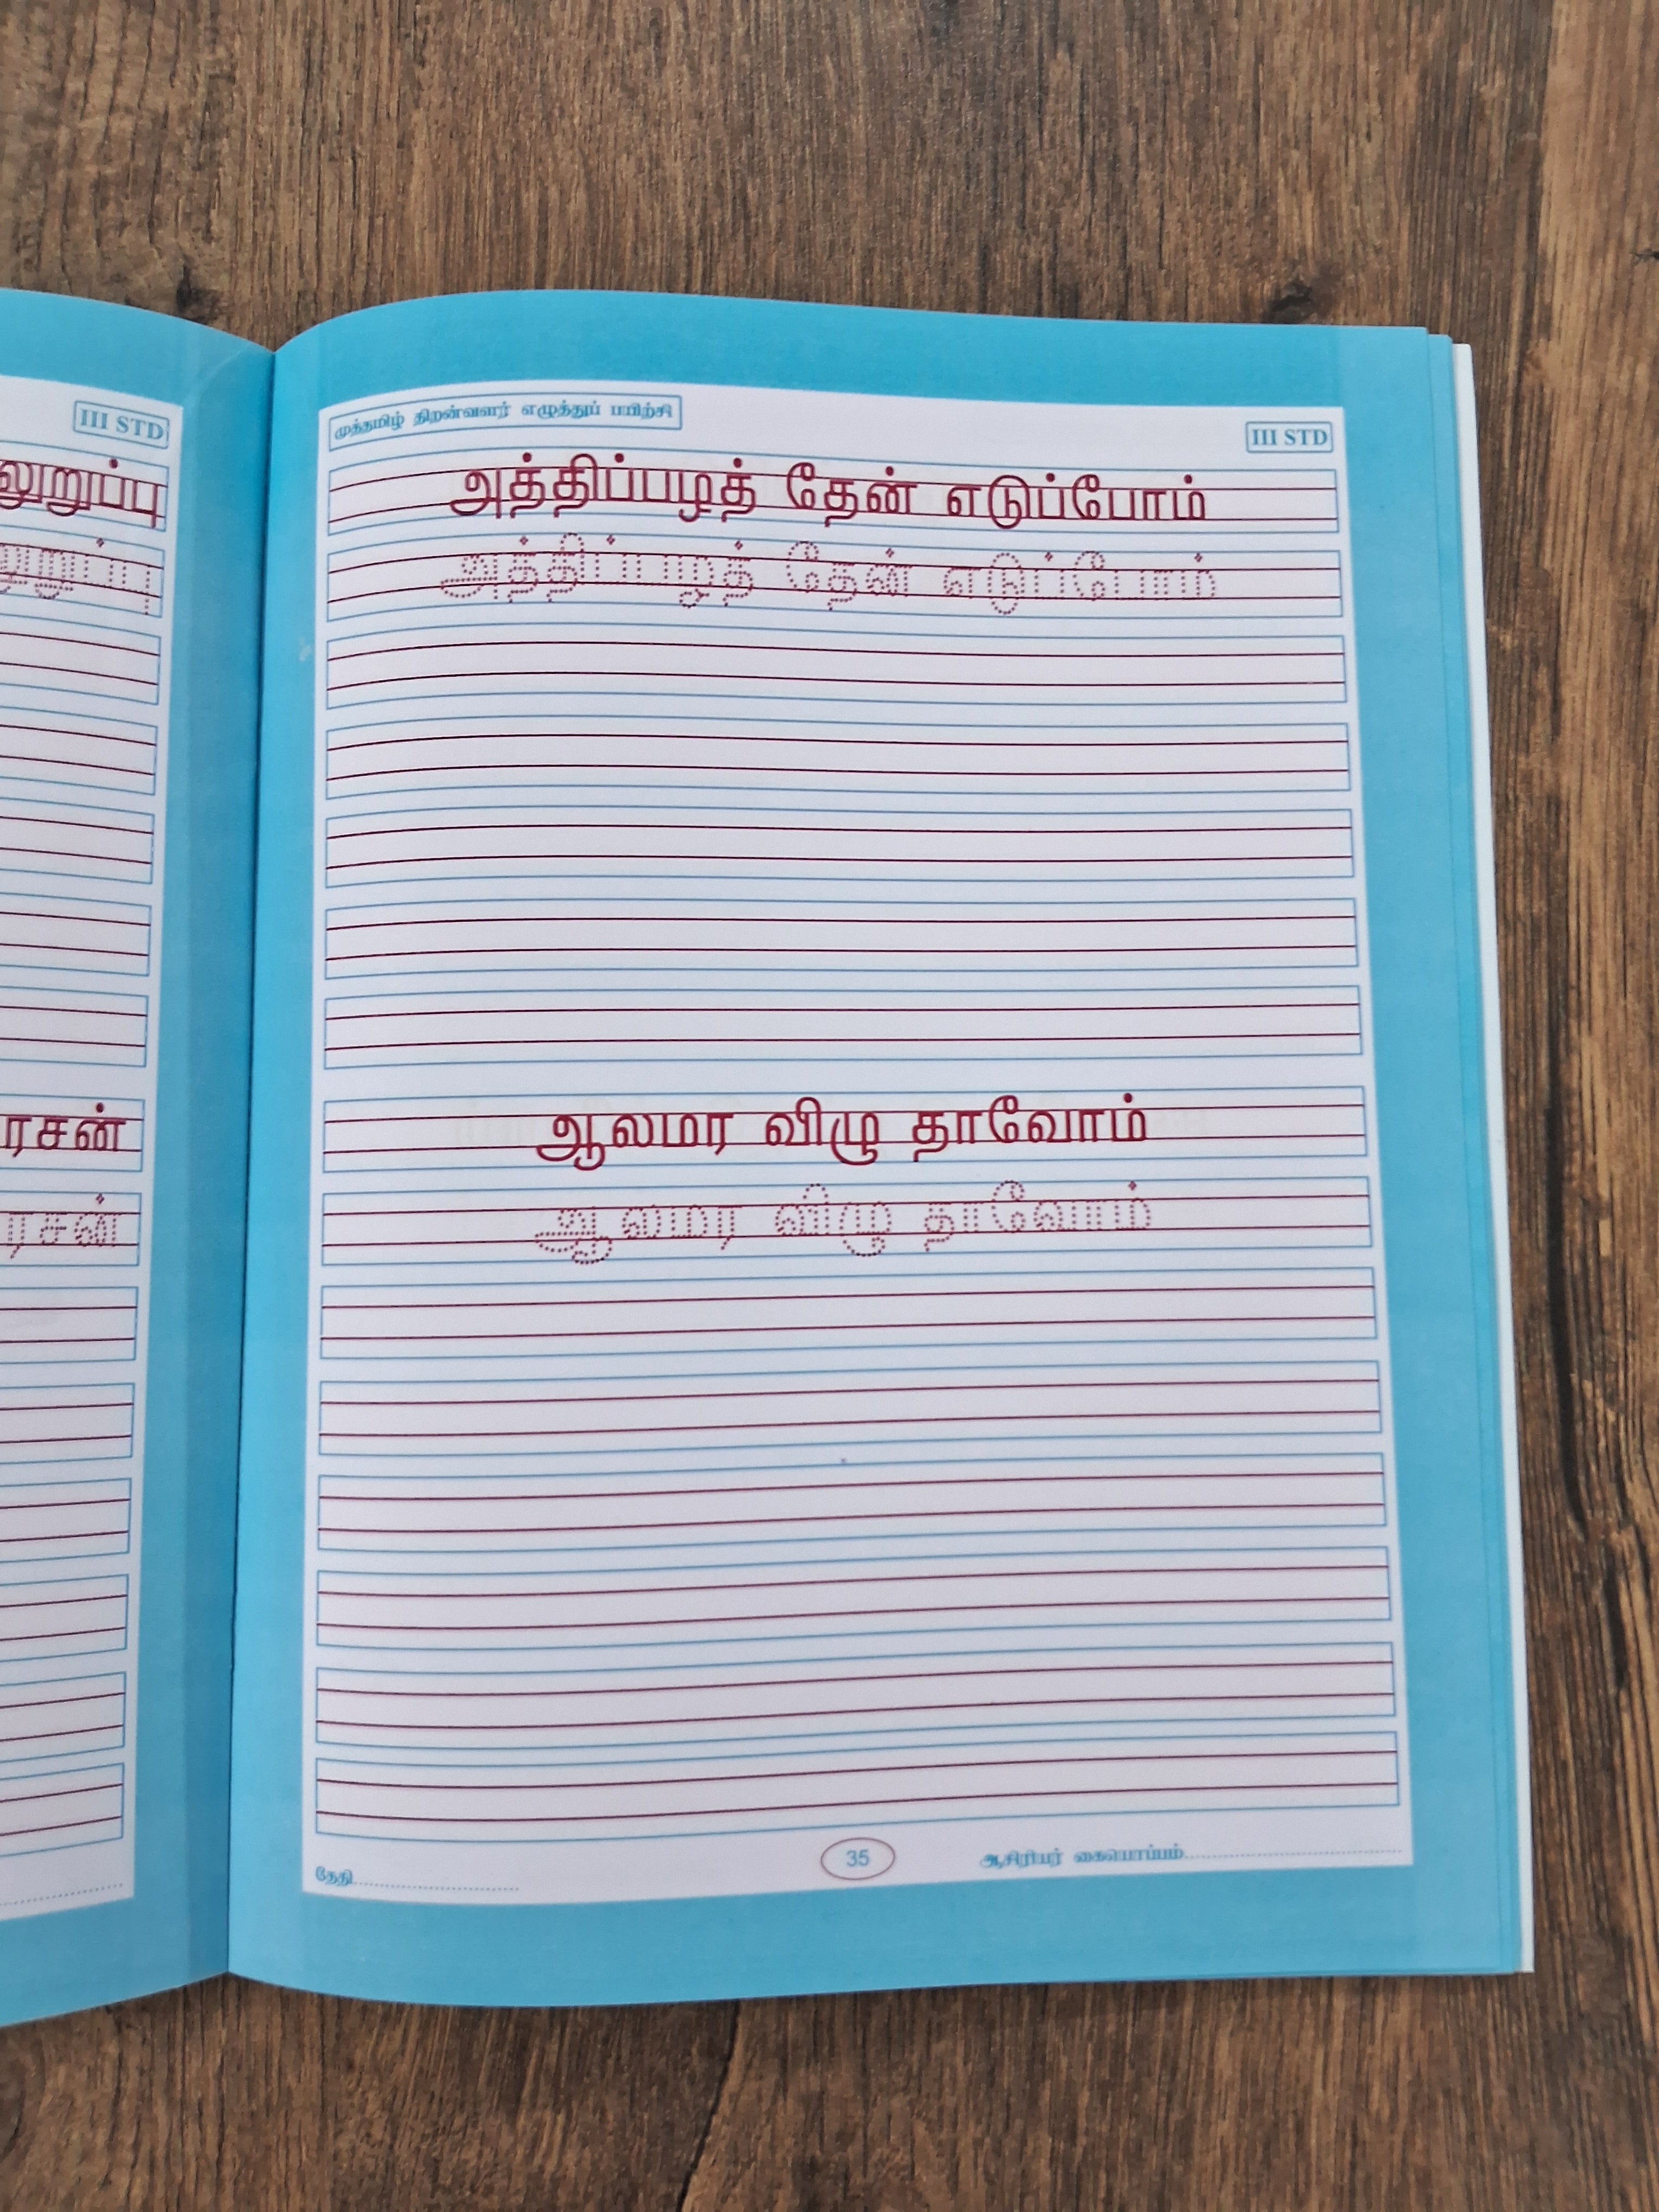 III STD
லுறுப்பு
லுறுப்பு
ரசன்
ரசன்
முத்தமிழ் திறன்வளர் எழுத்துப் பயிற்சி
III STD
அத்திப்பழத் தேன் எடுப்போம்
அத்திப்பழத் தேன் எடுப்போம்
ஆலமர விழு தாவோம்
ஆலமர விழு தாவோம்
தேதி....................................
35
ஆசிரியர் கையொப்பம்....................................